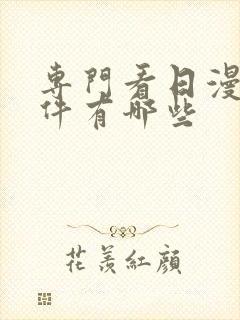 專門看日漫
件有哪些
花羨紅顏